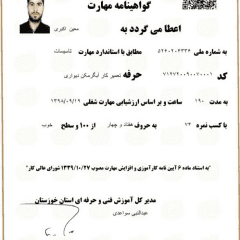 گواهینامه مهارت
اعطا می گردد به
معین اکبری
به شماره ملی ۵۲۶۰۲۰۶۳۳۶ مطابق با استاندارد مهارت تاسیسات
حرفه تعمیر کار آبگرمکن دیواری کد ۷۱۲۷۲۰۰۹۰۰۷۰۰۰۱
به مدت ۱۹۰ ساعت و بر اساس ارزشیابی مهارت شغلی ۱۳۹۸/۰۹/۱۹
با کسب نمره ۷۴ به حروف هفتاد و چهار از ۱۰۰ و سطح خوب
"به استناد ماده ۶ آیین نامه کارآموزی و افزایش مهارت مصوب ۱۳۴۹/۱۰/۲۷ شورای عالی کار"
مدیر کل آموزش فنی و حرفه ای استان خوزستان
عبدالنبی سواعدی